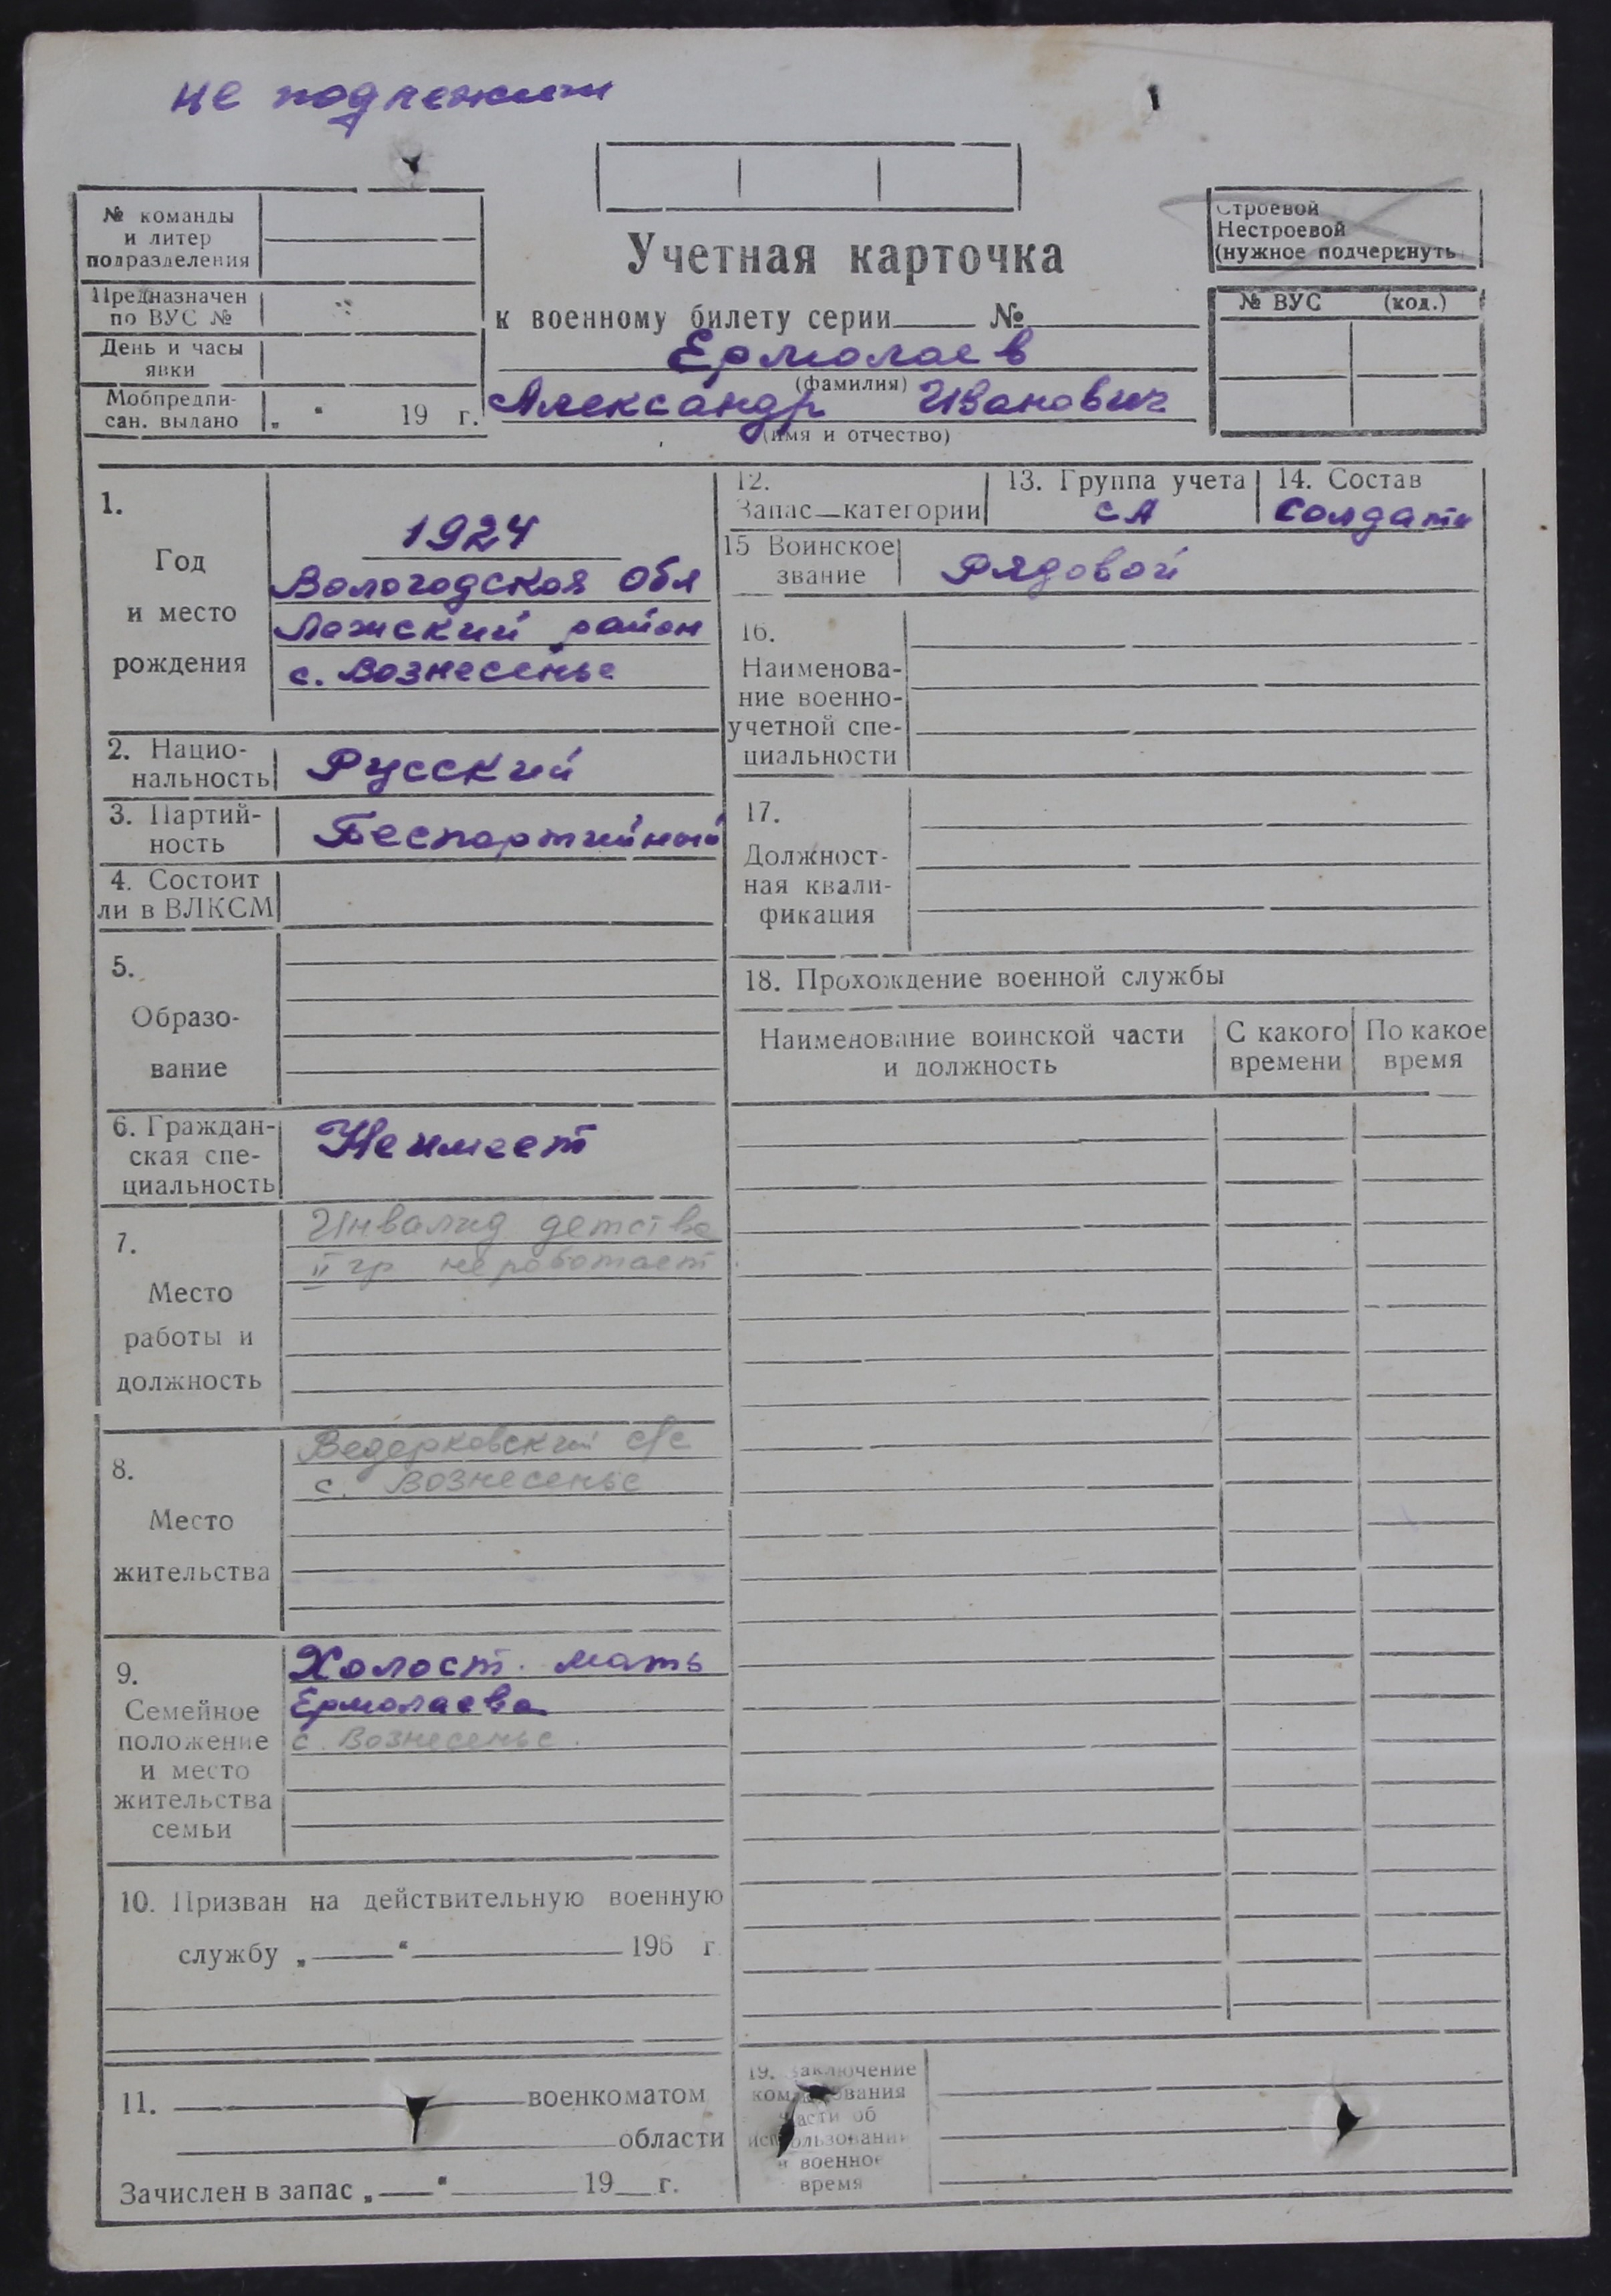 не подлежит
№ команды
и литер
подразделения
Предназначен
по ВУС №
День и часы
явки
Мобпредпи-
сан. выдано „ “ 19 г.
Учетная карточка
к военному билету серии № 
Ермолаев
(фамилия)
Александр Иванович
(имя и отчество)
Строевой
Нестроевой
(нужное подчеркнуть
№ ВУС (код.)
1.
Год
и место
рождения
1924
Вологодская Обл
Лежский район
с. Вознесенье
2. Нацио-
нальность
Русский
3. Партий-
ность
Беспартийный
4. Состоит
ли в ВЛКСМ
5.
Образо-
вание
6. Граждан-
ская спе-
циальность
Не имеет
7.
Место
работы и
должность
Инвалид детства
II гр не работает
8.
Место
жительства
Ведерковский с/с
с. Вознесенье
9.
Семейное
положение
и место
жительства
семьи
Холост. мать
Ермолаева
с. Вознесенье.
10. Призван на действительную военную
службу „ “ 196 г
11. военкоматом
области
Зачислен в запас „ “ 19 г.
12.
Запас—категории
13. Группа учета
СА
14. Состав
Солдаты
15 Воинское
звание
Рядовой
16.
Наименова-
ние военно-
учетной спе-
циальности
17.
Должност-
ная квали-
фикация
18. Прохождение военной службы
Наименование воинской части
и должность
С какого
времени
По какое
время
19. Заключение
командования
части об
использовании
в военное
время